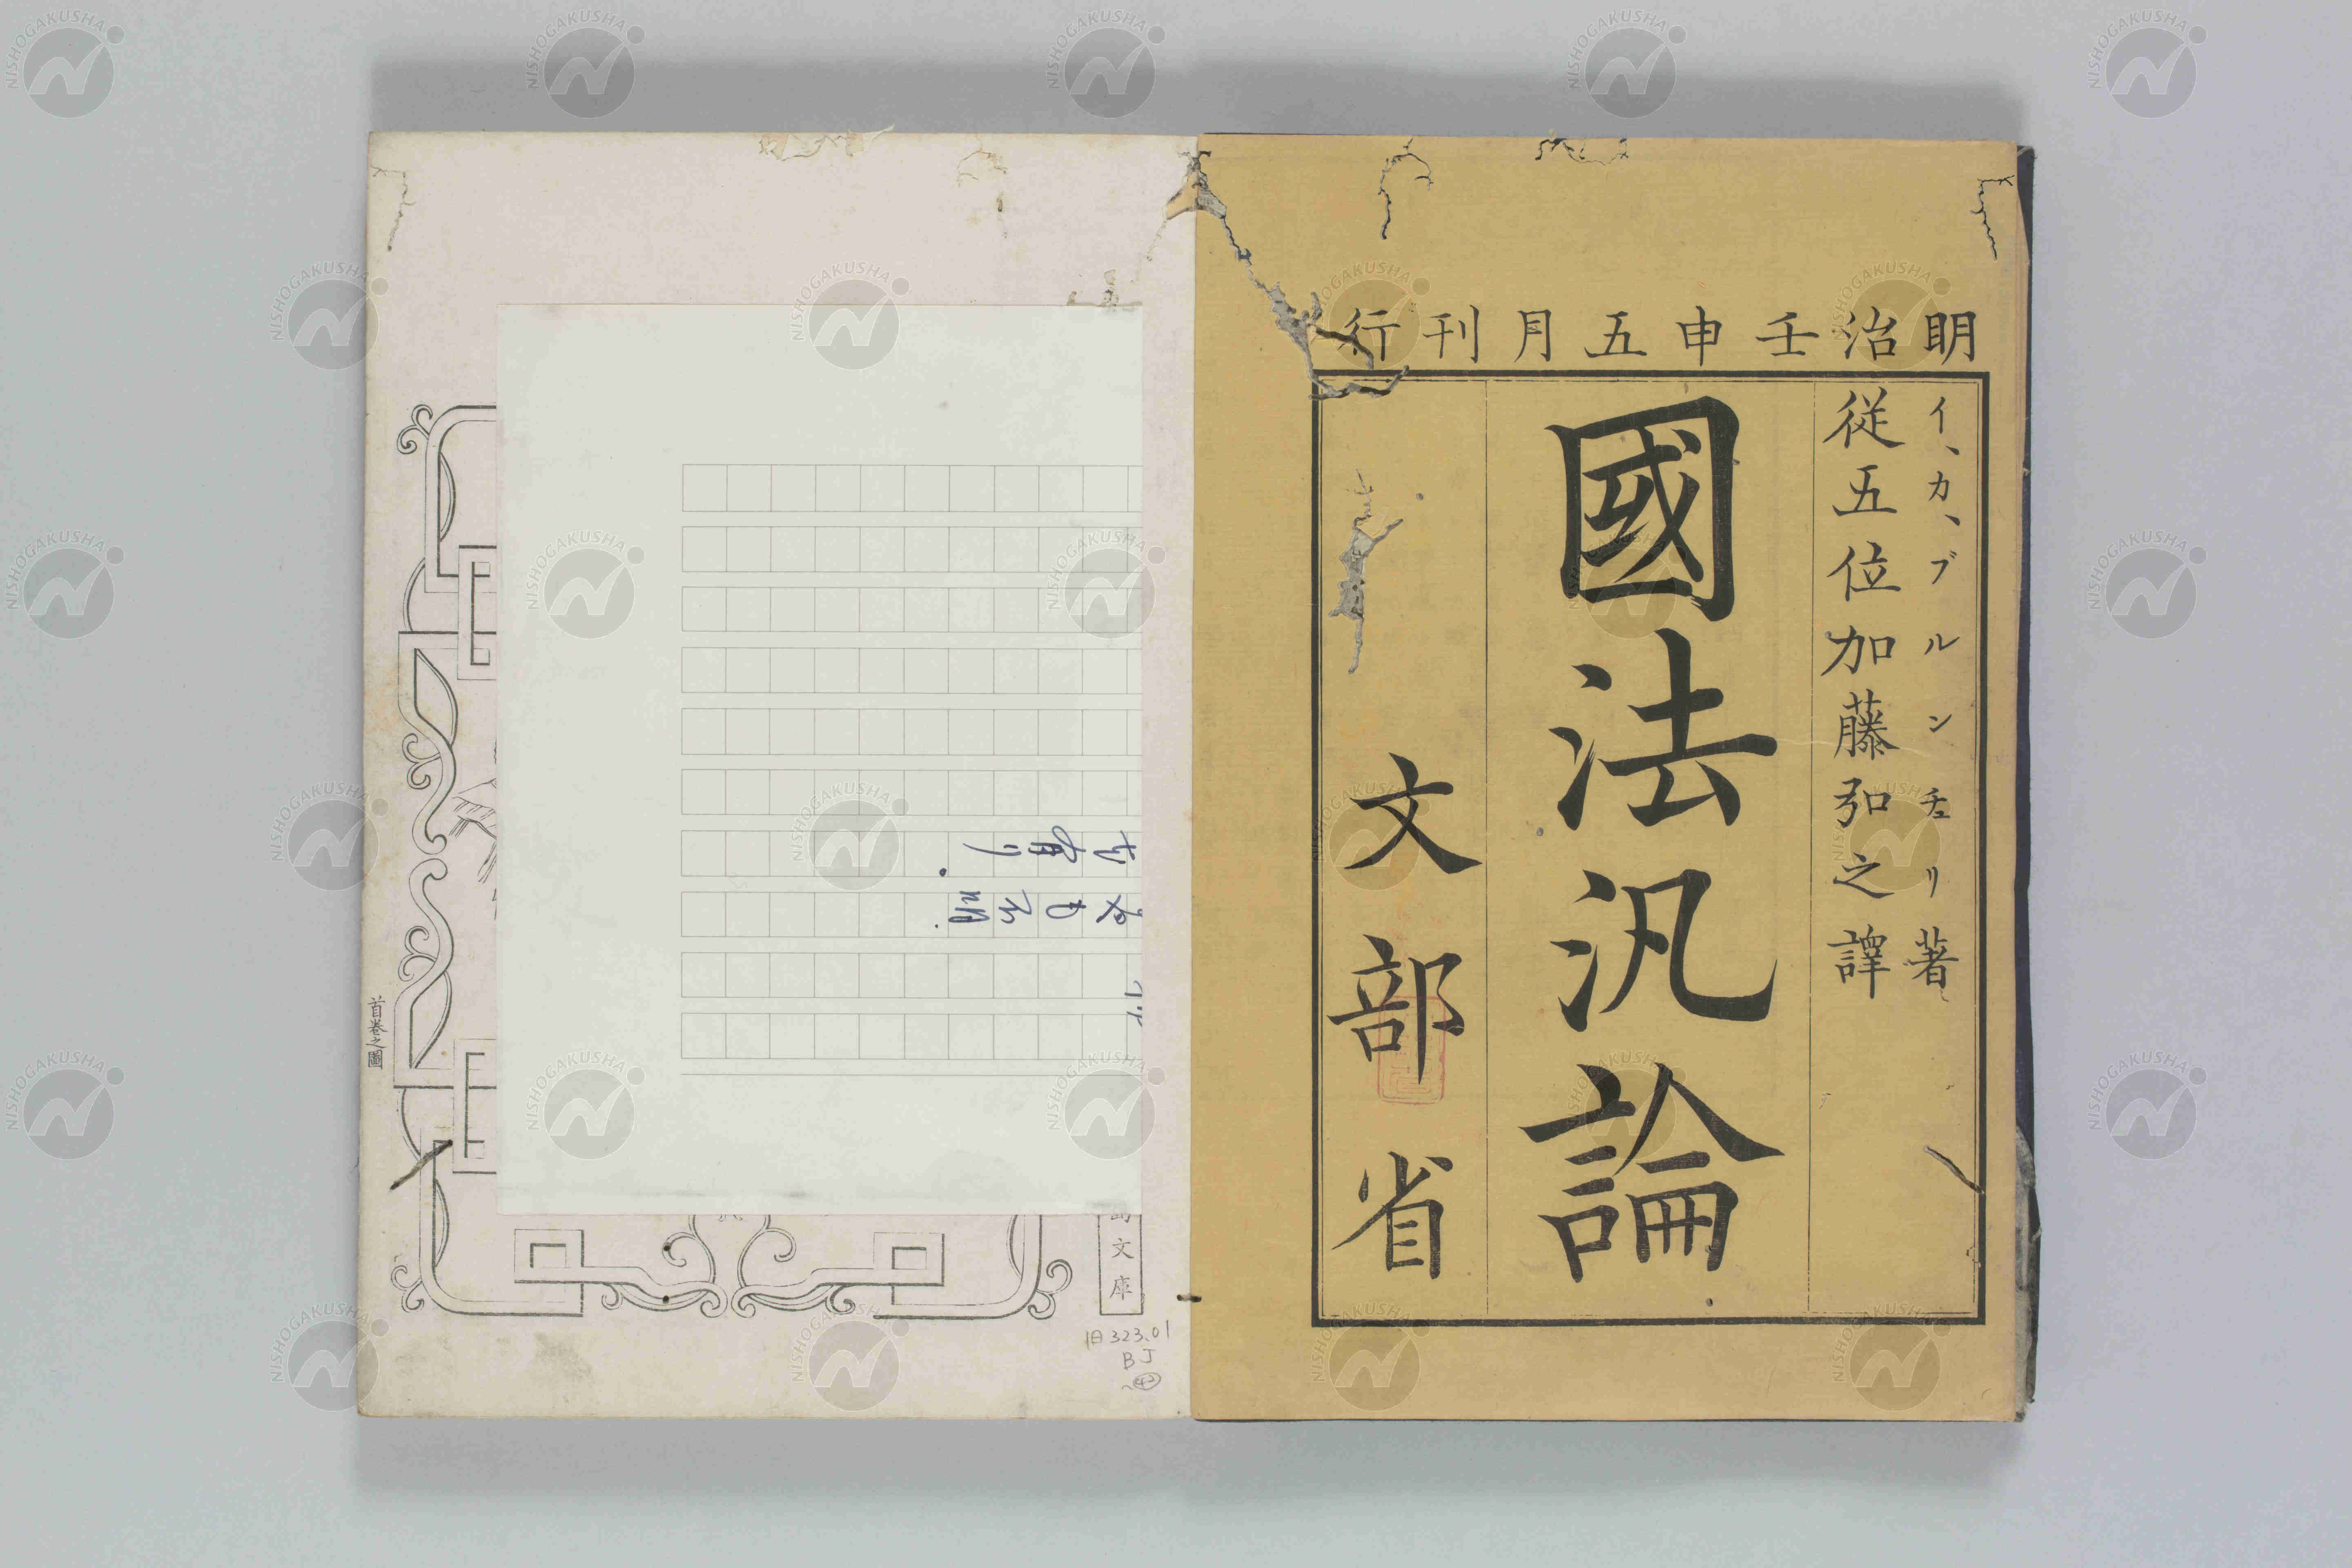 明治壬申五月刊行
イ、カ、ブルンチェリ著
従五位加藤弘之譯
國法汎論
文部省
文庫
旧323.01
BJ
首巻之圖
NISHOGAKUSHA